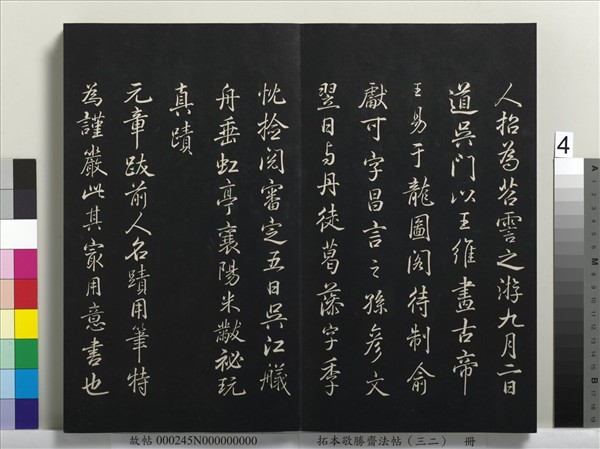 人招為苕霅之游九月二日
道吳門以王維畫古帝
王易于龍圖閣待制俞
獻可字昌言之孫彦文
翌日与丹徒葛藻字季
忱撿閱審定五日吳江艤
舟垂虹亭襄陽米黻祕玩
真蹟
元章跋前人名蹟用筆特
為謹嚴此其㝡用意書也
4
A
M
B
故帖 000245N000000000
拓本敬勝齋法帖（三二） 冊